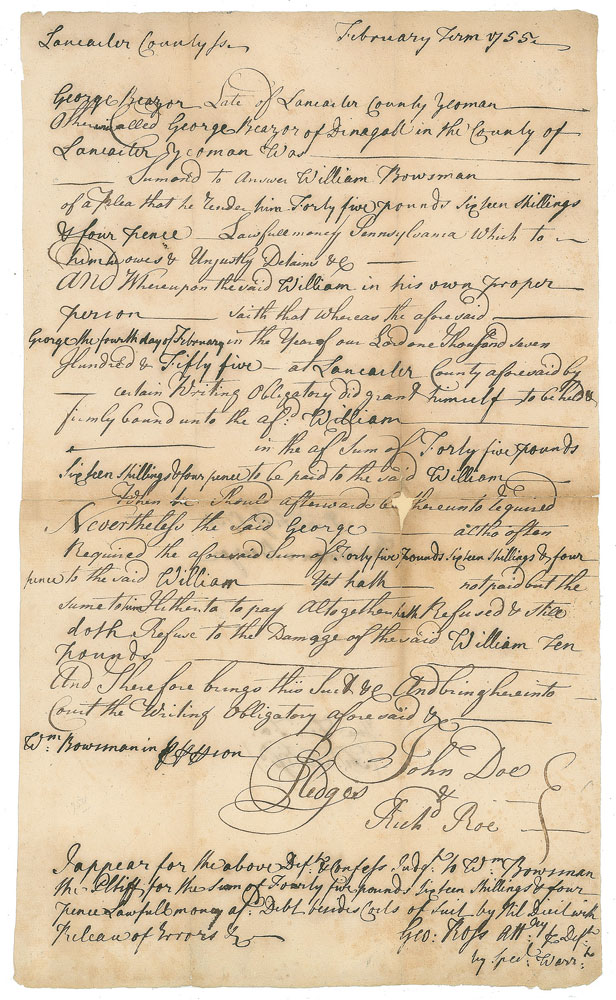 Lancaster County ss. February Term 1755
George Reazor Late of Lancaster County Yeoman
Otherwise Called George Reazor of Dinagall in the County of
Lancaster Yeoman Was
Sumond to Answer William Bowsman
of a Plea that he Render him Forty five pounds Sixteen Shillings
& four pence Lawfull money Pennsylvania Which to
him owes & Unjustly Detains &c
And Whereupon the said William in his own proper
person saith that whereas the aforesaid
George the fourth day of February in the Year of our Lord one Thousand seven
Hundred & Fifty five at Lancaster County aforesaid by
certain Writing Obligatory did grant himself to be held &
firmly bound unto the afd. William
in the afd. Sum of Forty five pounds
Sixteen Shillings & four pence to be paid to the said William
When he should afterwards be thereunto Required
Nevertheless the Said George altho often
Required the aforesaid Sum of Forty five pounds Sixteen Shillings & four
pence to the said William Yet hath not paid but the
same to him Hitherto to pay Altogether hath Refused & still
doth Refuse to the Damage of the said William Ten
Pounds
And Therefore brings this Suit &c And bring here into
Court the Writing Obligatory aforesaid &c
Wm. Bowsman in
Pledges John Doe
&
Richd. Roe
I appear for the above Deft. & Confess Judgt. to Wm. Bowsman
the Pltiff for the Sum of Fourty five pounds Sixteen Shillings & four
pence Lawfull money afd. Debt besides Costs of Suit by Nil Dicit with
Release of Errors &c Geo: Ross Attry. for Deft.
by Specl. Warrt.